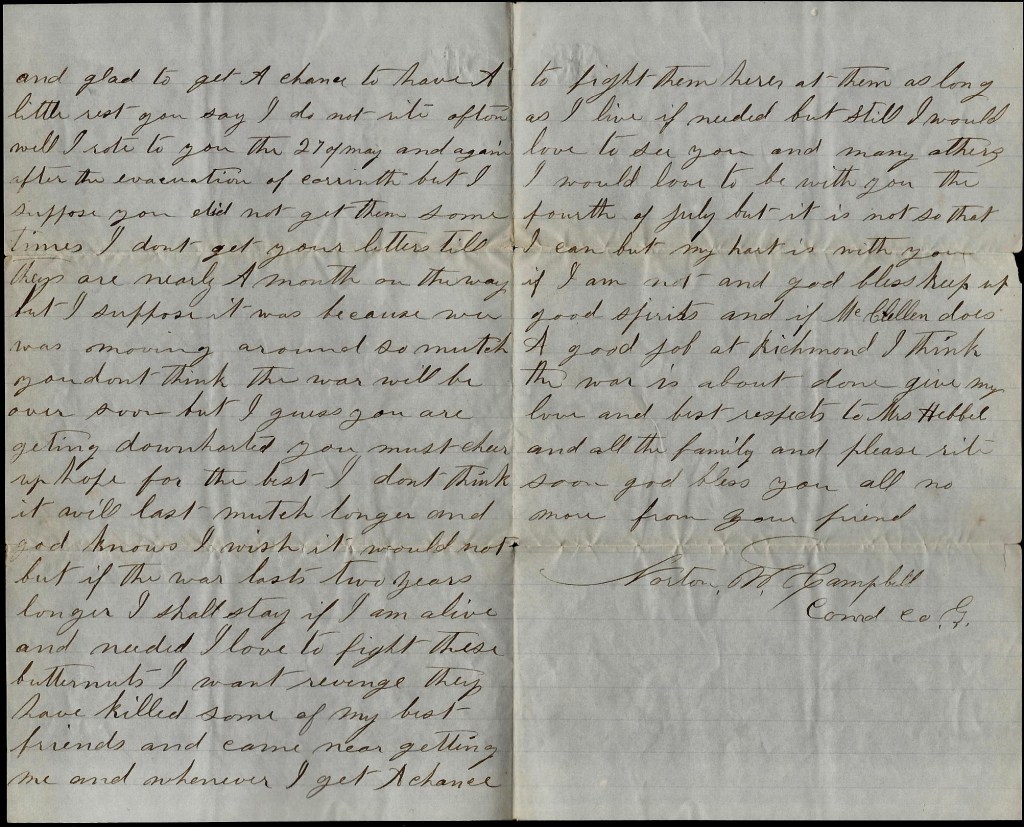 and glad to get A chance to have A
little rest you say I do not rite often
well I rote to you the 27 of may and again
after the evacuation of corrinth but I
suppose you did not get them some
times I dont get your letters till
they are nearly A month on the way
but I suppose it was because wee
was moving around so mutch
you dont think the war will be
over soon but I guess you are
geting downharted you must cheer
up hope for the best I dont think
it will last mutch longer and
god knows I wish it would not
but if the war lasts two years
longer I shall stay if I am alive
and needed I love to fight these
butternuts I want revenge they
have killed some of my best
friends and came near getting
me and whenever I get A chance
to fight them heres at them as long
as I live if needed but still I would
love to see you and many others
I would love to be with you the
fourth of july but it is not so that
I can but my hart is with you
if I am not and god bless keep up
good spirits and if McClellen does
A good job at Richmond I think
the war is about done give my
love and best respects to Mrs Hebbel
and all the family and please rite
soon god bless you all no
more from your friend
Norton, W. Campbell
Comd Co. G.